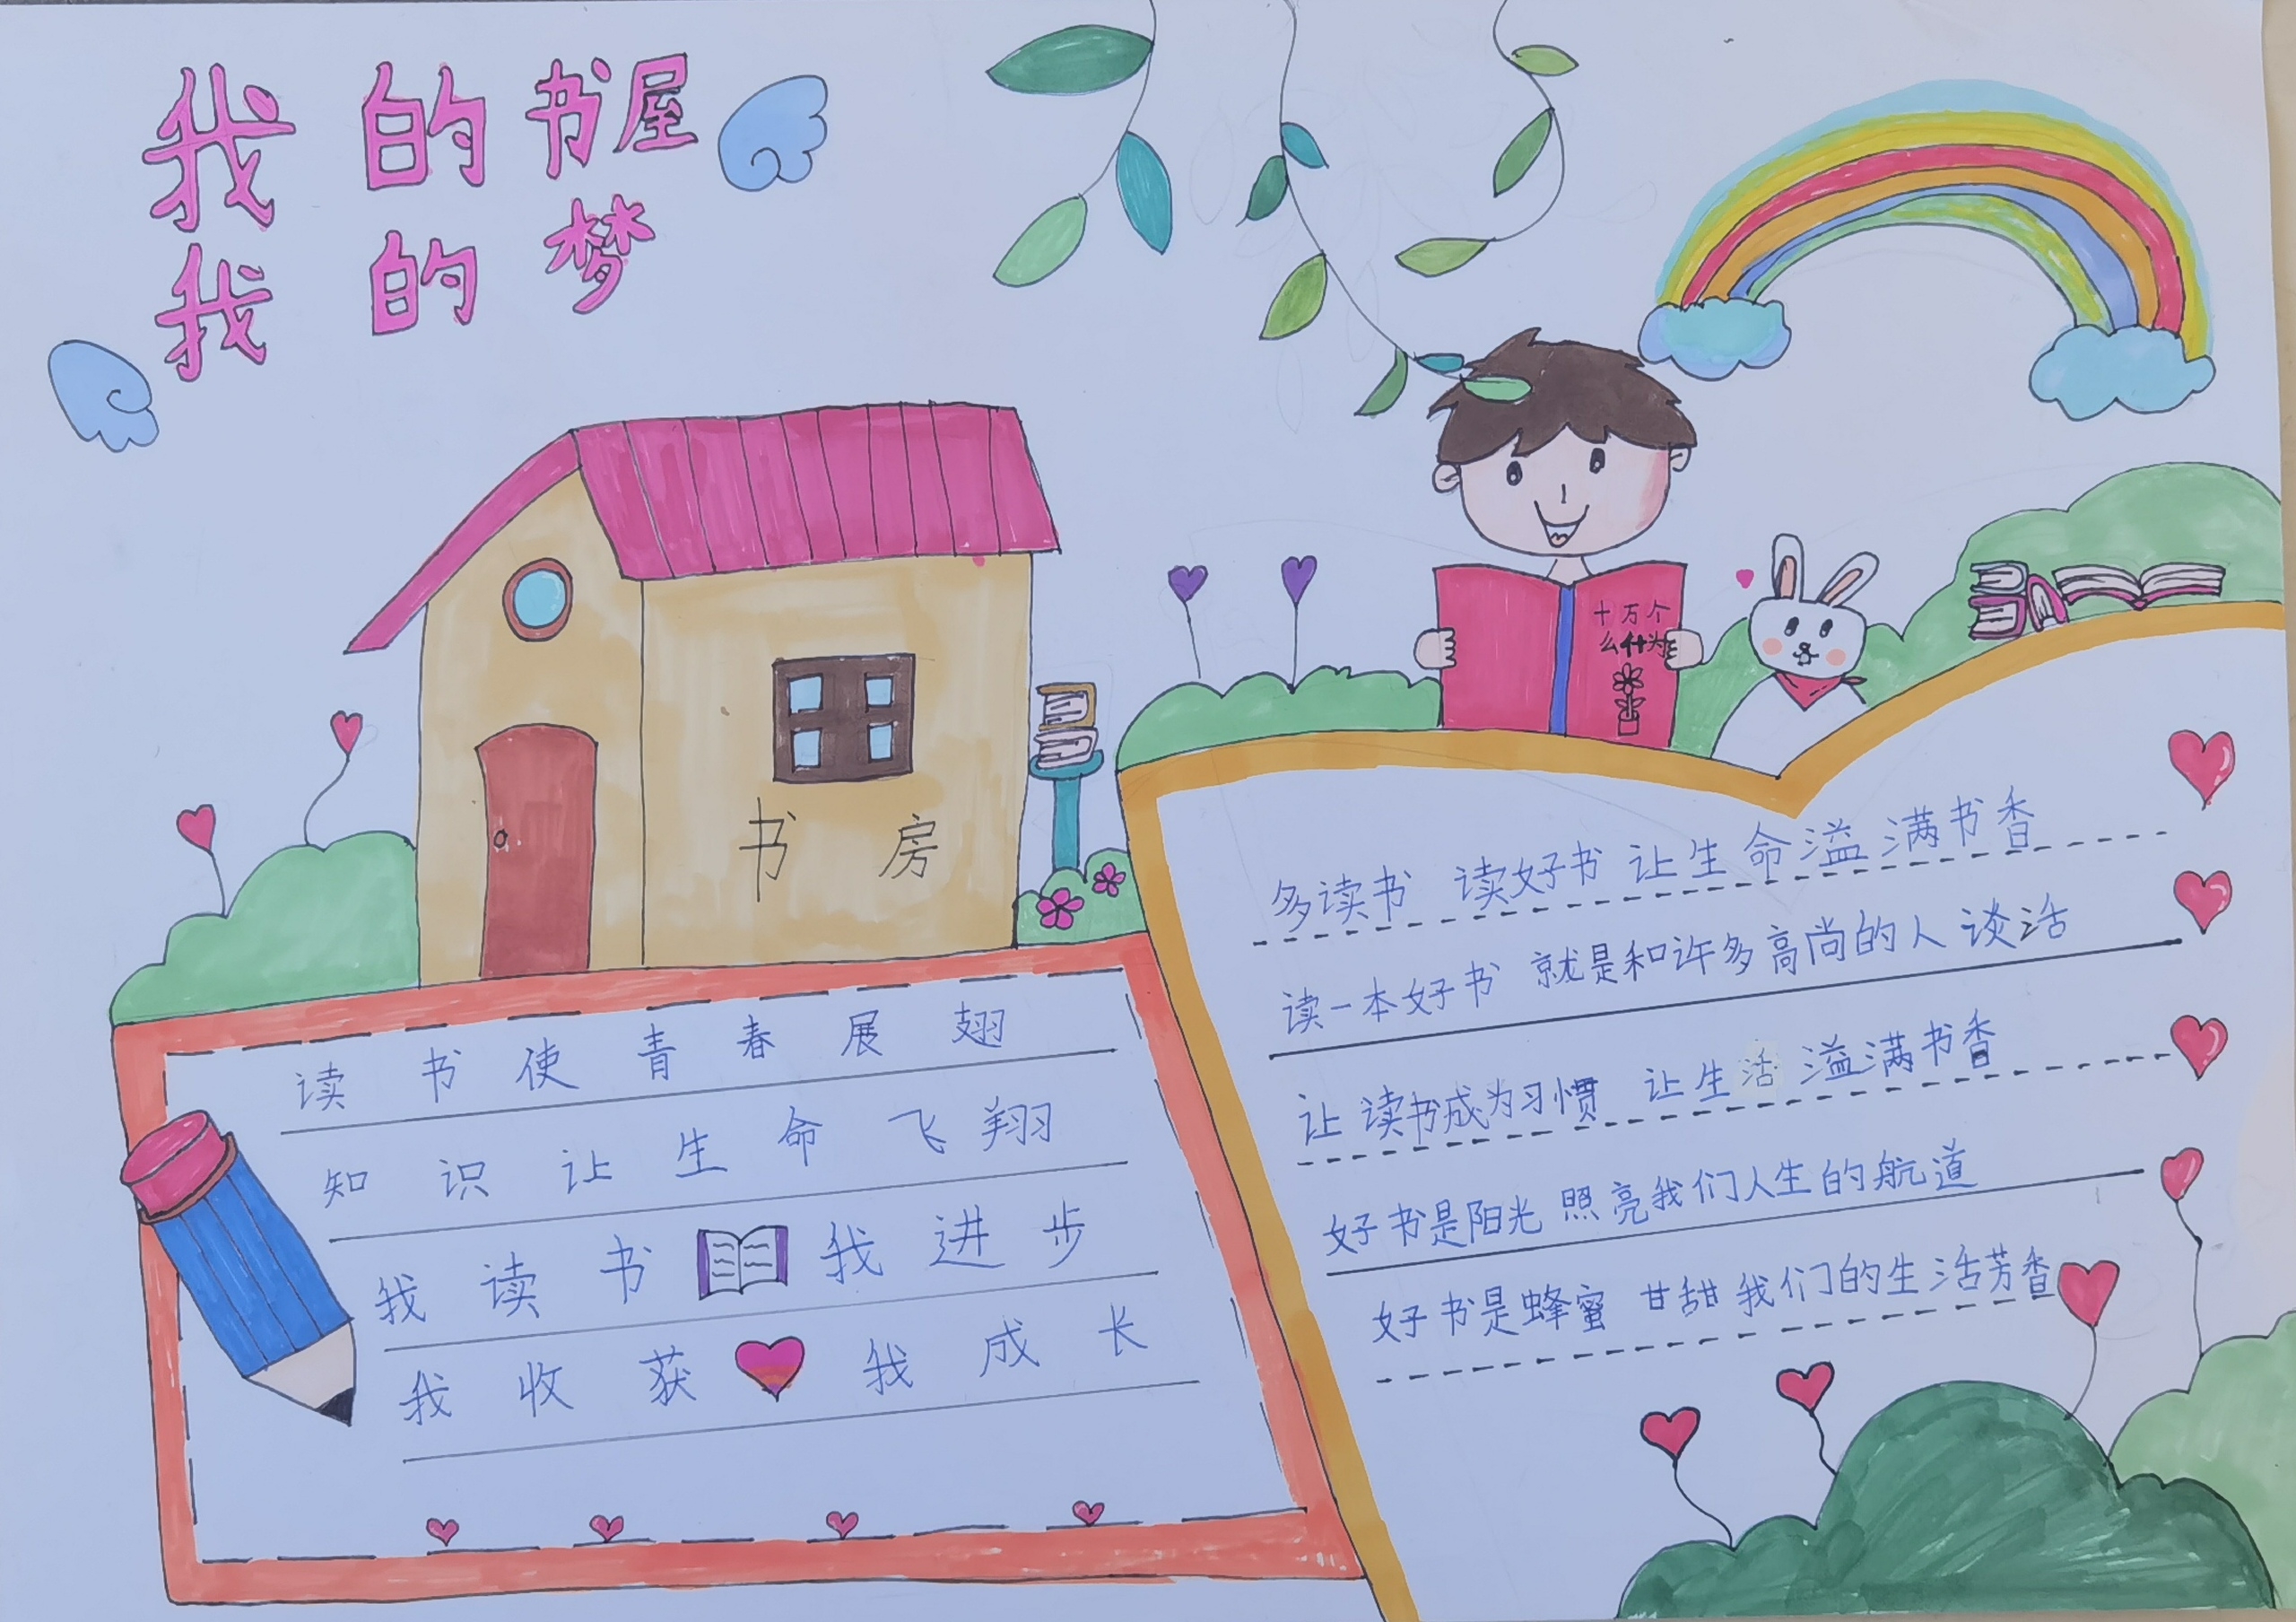 我的书屋
我的梦
十万个
么什为
书房
读书使青春展翅
知识让生命飞翔
我读书 我进步
我收获 我成长
多读书 读好书 让生命溢满书香
读一本好书 就是和许多高尚的人谈活
让读书成为习惯 让生活溢满书香
好书是阳光 照亮我们人生的航道
好书是蜂蜜 甘甜我们的生活芳香